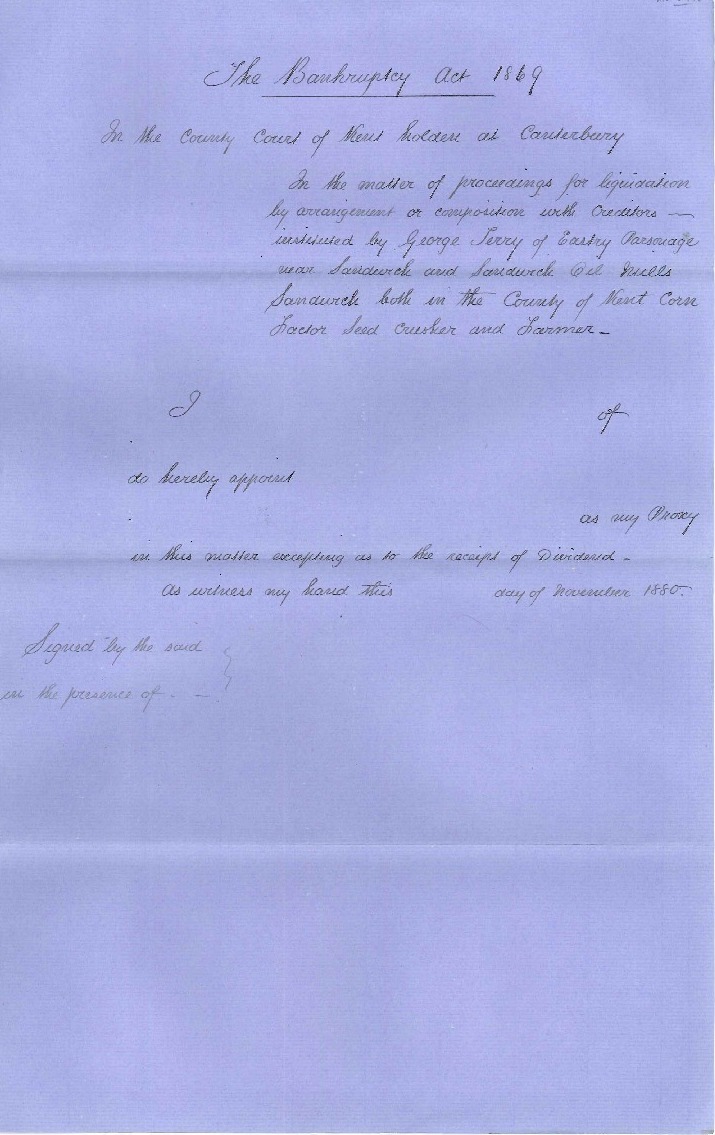 The Bankruptcy Act 1869
In the County Court of Kent holden at Canterbury
In the matter of proceedings for liquidation
by arrangement or composition with Creditors —
instituted by George Terry of Eastry Parsonage
near Sandwich and Sandwich Oil Mills
Sandwich both in the County of Kent Corn
Factor Seed Crusher and Farmer —
I of
do hereby appoint
as my Proxy
in this matter excepting as to the receipt of Dividend —
As witness my hand this day of November 1880.
Signed by the said
in the presence of. —